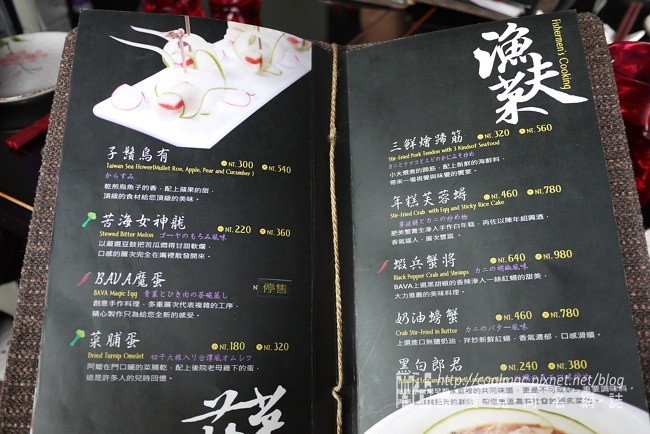 子鬚烏有
NT. 300
NT. 540
Taiwan Sea Flower(Mullet Roe, Apple, Pear and Cucumber)
からすみ
乾煎烏魚子的香，配上蘋果的甜，
頂級的食材給您頂級的美味。
苦海女神龍
NT. 220
NT. 360
Stewed Bitter Melon ゴーヤのもろみ風味
以嚴選豆鼓把苦瓜燜得甘甜軟爛，
口感的層次完全在嘴裡散發開來。
BAVA魔蛋
停售
BAVA Magic Egg 青菜とひき肉の茶碗蒸し
創意手作料理，多重層次代表複雜的工序，
精心製作只為給您全新的感受。
菜脯蛋
NT. 180
NT. 320
Dried Turnip Omelet 切干大根入り台湾風オムレツ
阿嬤在門口曬的菜脯乾，配上後院老母雞下的蛋，
這是許多人的兒時回憶。
漁夫菜
Fishermen's Cooking
三鮮燴蹄筋
NT. 320
NT. 560
Stir-Fried Pork Tendon with 3 Kindsof Seafood
カニとナマコとエビのかにみそ炒め
小火煨煮的蹄筋，配上新鮮的海鮮料，
帶來一場視覺與味覺的饗宴。
年糕芙蓉蟳
NT. 460
NT. 780
Stir-Fried Crab with Egg and Sticky Rice Cake
寧波餅とカニの炒め物
肥美蟹黃全滲入手作白年糕，再佐以陳年紹興酒，
香氣逼人，層次豐富。
蝦兵蟹將
NT. 640
NT. 980
Black Pepper Crab and Shrimps カニの胡椒風味
BAVA上選黑胡椒的香辣滲入一絲紅蟳的甜美，
大力推薦的美味料理。
奶油螃蟹
NT. 460
NT. 780
Crab Stir-Fried in Butter カニのバター風味
上選進口無鹽奶油，拌炒新鮮紅蟳，香氣濃郁，口感滑順。
黑白郎君
NT. 240
NT. 380
http://cooimo.pixnet.net/blog